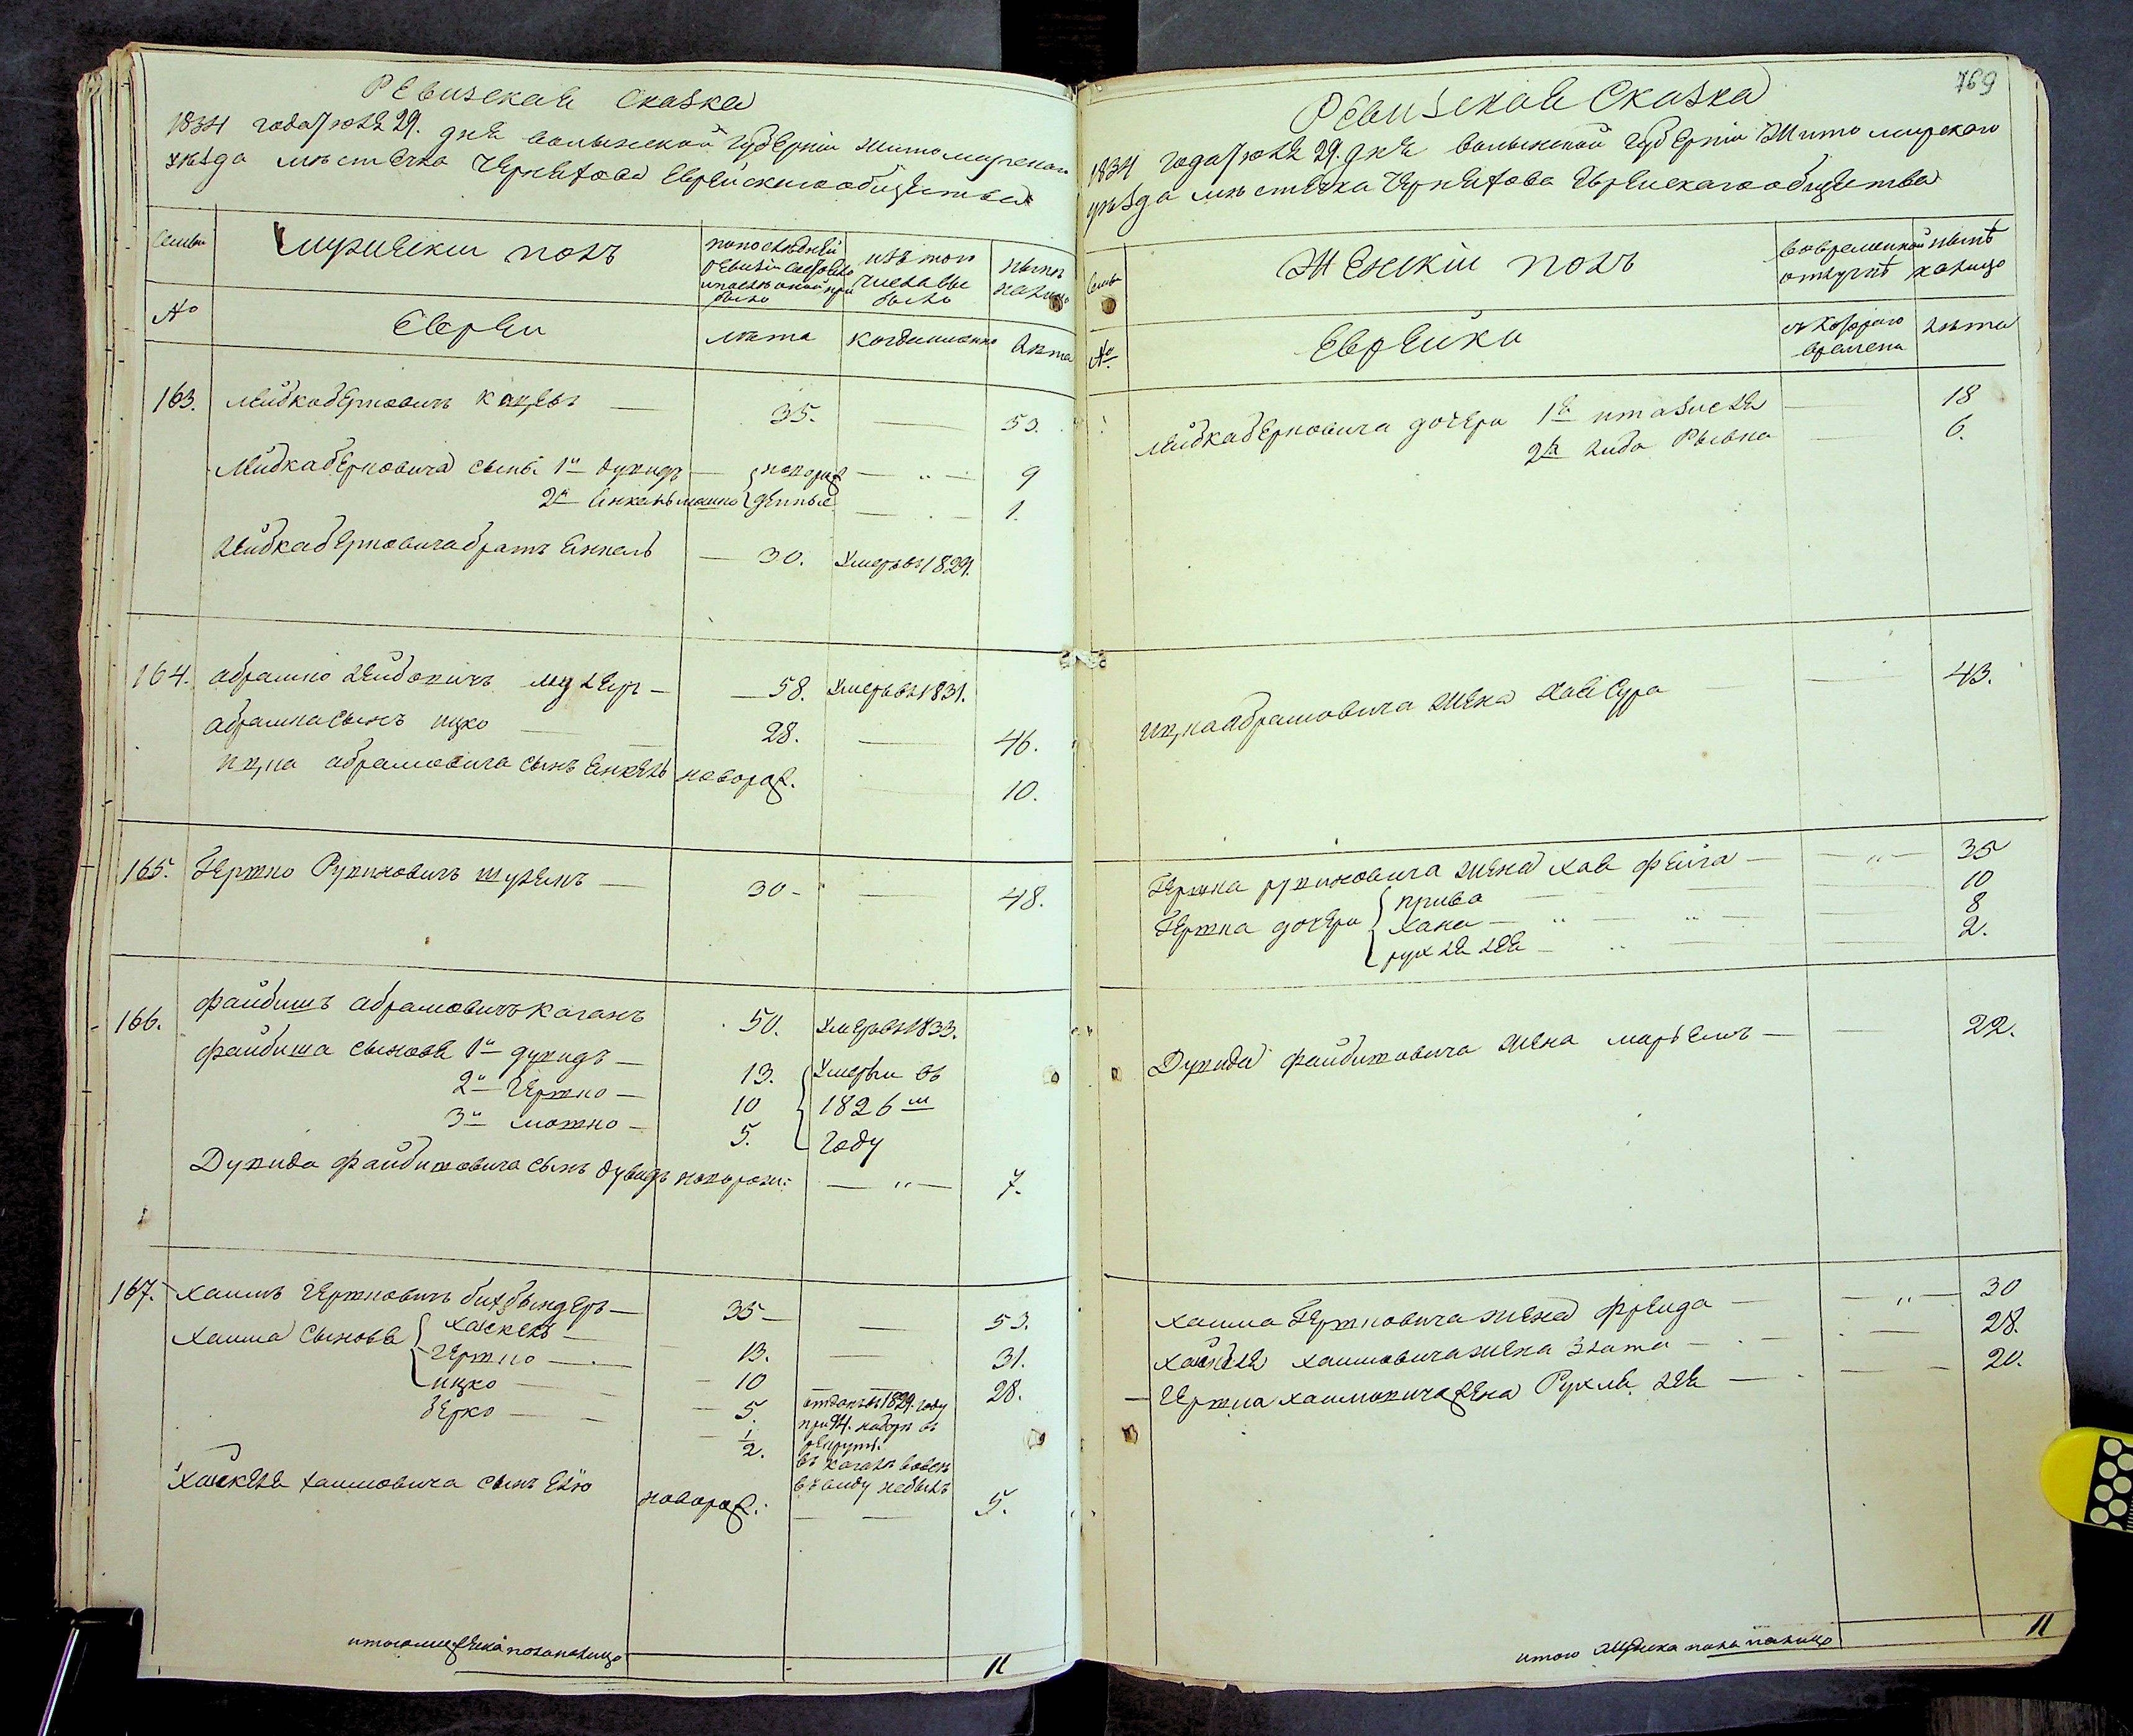 Ревизская Сказка
1834 года Июля 29. дня Волынской Губернии Житомирскаго
уѣзда мѣстечка Черняхова Еврейскаго общества
Семьи
Мужескій полъ
по последней ревизіи состояло и после оной прибыло
изъ того числа выбыло
нынѣ на лицо
№
Евреи
лѣта
когда именно
лѣта
163. Лейбка Берковичъ — 35. — 53.
Лейбка Берковича сыны 1й Дувидъ — новорож — „ — 9
2й денные — 1.
Лейбка Берковича братъ Янкель — 30. умеръ въ 1829.
164. Абрамко Лейбовичъ — 58. умеръ въ 1831.
Абрамка сынъ Ицко — 28. — 46.
Ицка Абрамовича сынъ Янкель новорож. — 10.
165. Гершко Рувиновичъ — 30 — 48.
166. Файбишъ Абрамовичъ Каганъ 50. умеръ въ 1833.
Файбиша сыновья 1й Дувидъ — 13. умерли въ
2й Гершко — 10 1826м
3й Мошко — 5. году
Дувида Файбишовича сынъ Дувидъ новорож: — „ — 7.
167. Хаимъ Гершковичъ — 35 — 53.
Хаима сыновья Хаскель — 13. — 31.
Гершко — 10 — 28.
Ицко — 5. отданъ въ 1829. году
Берко — 1/2. при наборѣ въ
рекруты.
ввиду небылъ
Хаскеля Хаимовича сынъ Елю новорож: — 5.
итого мужеска пола налицо 11
769
Ревизская Сказка
1834 года Июля 29. дня Волынской Губернии Житомирскаго
уѣзда мѣстечка Черняхова Еврейскаго общества
Семьи
Женскій полъ
во временной отлучкѣ
нынѣ налицо
№
Еврейки
съ котораго времени
лѣта
Лейбка Берковича дочери 1я — 18
2я Рывка — 6.
Ицка Абрамовича жена Хая Сура — 43.
Гершка Рувиновича жена Хая Фейга — „ — 35
Гершка дочери — 10
Хана — „ — „ — 8
Рухля Лея — „ — 2.
Дувида Файбишовича жена Марьемъ — 22.
Хаима Гершковича жена Фрейда — „ — 30
Хаскеля Хаимовича жена Злата — 28.
Гершка Хаимовича жена Рухля Лея — 20.
итого женска пола налицо 11